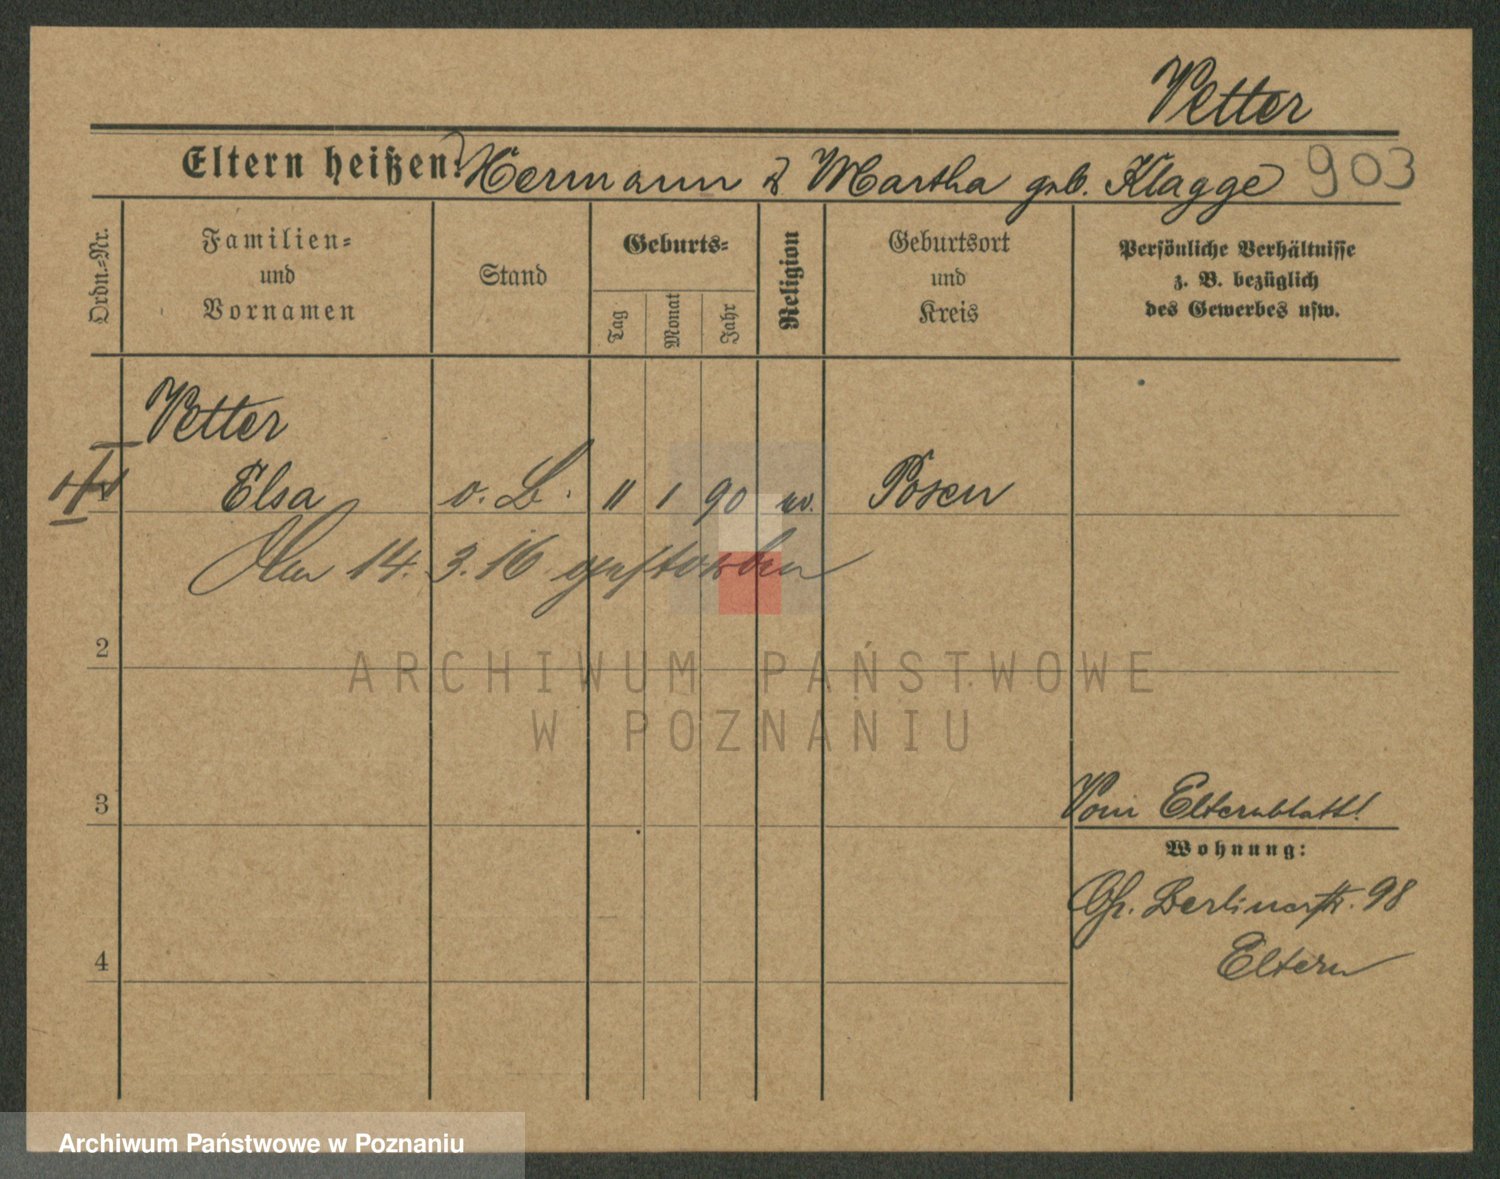 Vetter
Eltern heißen: Hermann & Martha geb. Klagge 903
Ordn.-Nr.
Familien- und Vornamen
Stand
Geburts-
Tag
Monat
Jahr
Religion
Geburtsort und Kreis
Persönliche Verhältnisse
z. B. bezüglich
des Gewerbes usw.
Vetter
Elsa o. B. 11 1 90 ev. Posen
Am 14. 3. 16 gestorben
2
ARCHIWUM PAŃSTWOWE
W POZNANIU
3
Vom Elternblatt!
Wohnung:
Gr. Berlinerstr. 98
4
Eltern
Archiwum Państwowe w Poznaniu